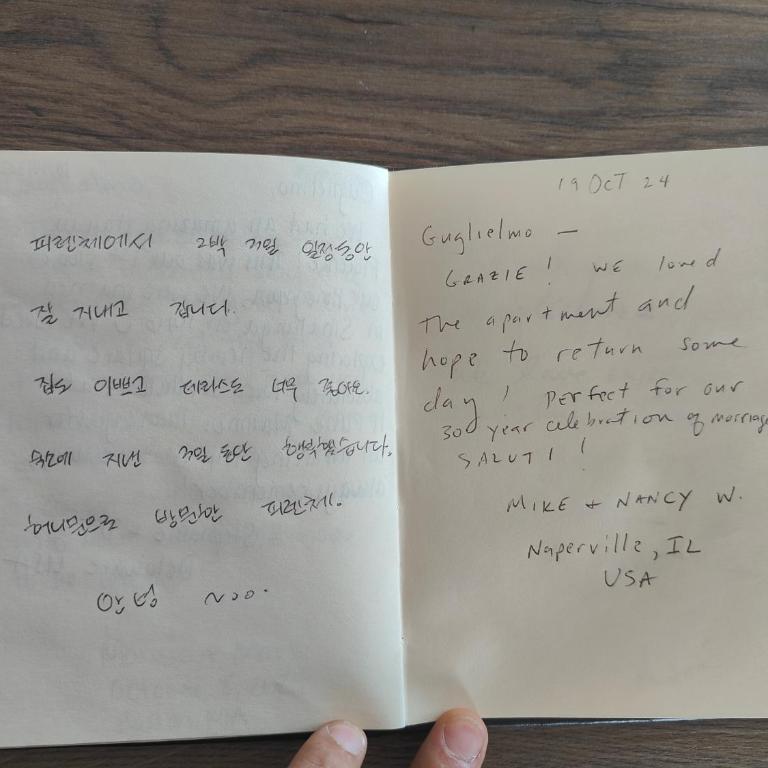 피렌체에서 2박 3일 일정동안
잘 지내고 갑니다.
집도 이쁘고 테라스도 너무 좋아요.
숙소에 지낸 3일 동안 행복했습니다.
허니문으로 방문한 피렌체.
안녕 ~ㅇㅇ.
19 OCT 24
Guglielmo —
GRAZIE! WE loved
the apartment and
hope to return some
day! Perfect for our
30 year celebration of marriage
SALUTI!
MIKE + NANCY W.
Naperville, IL
USA